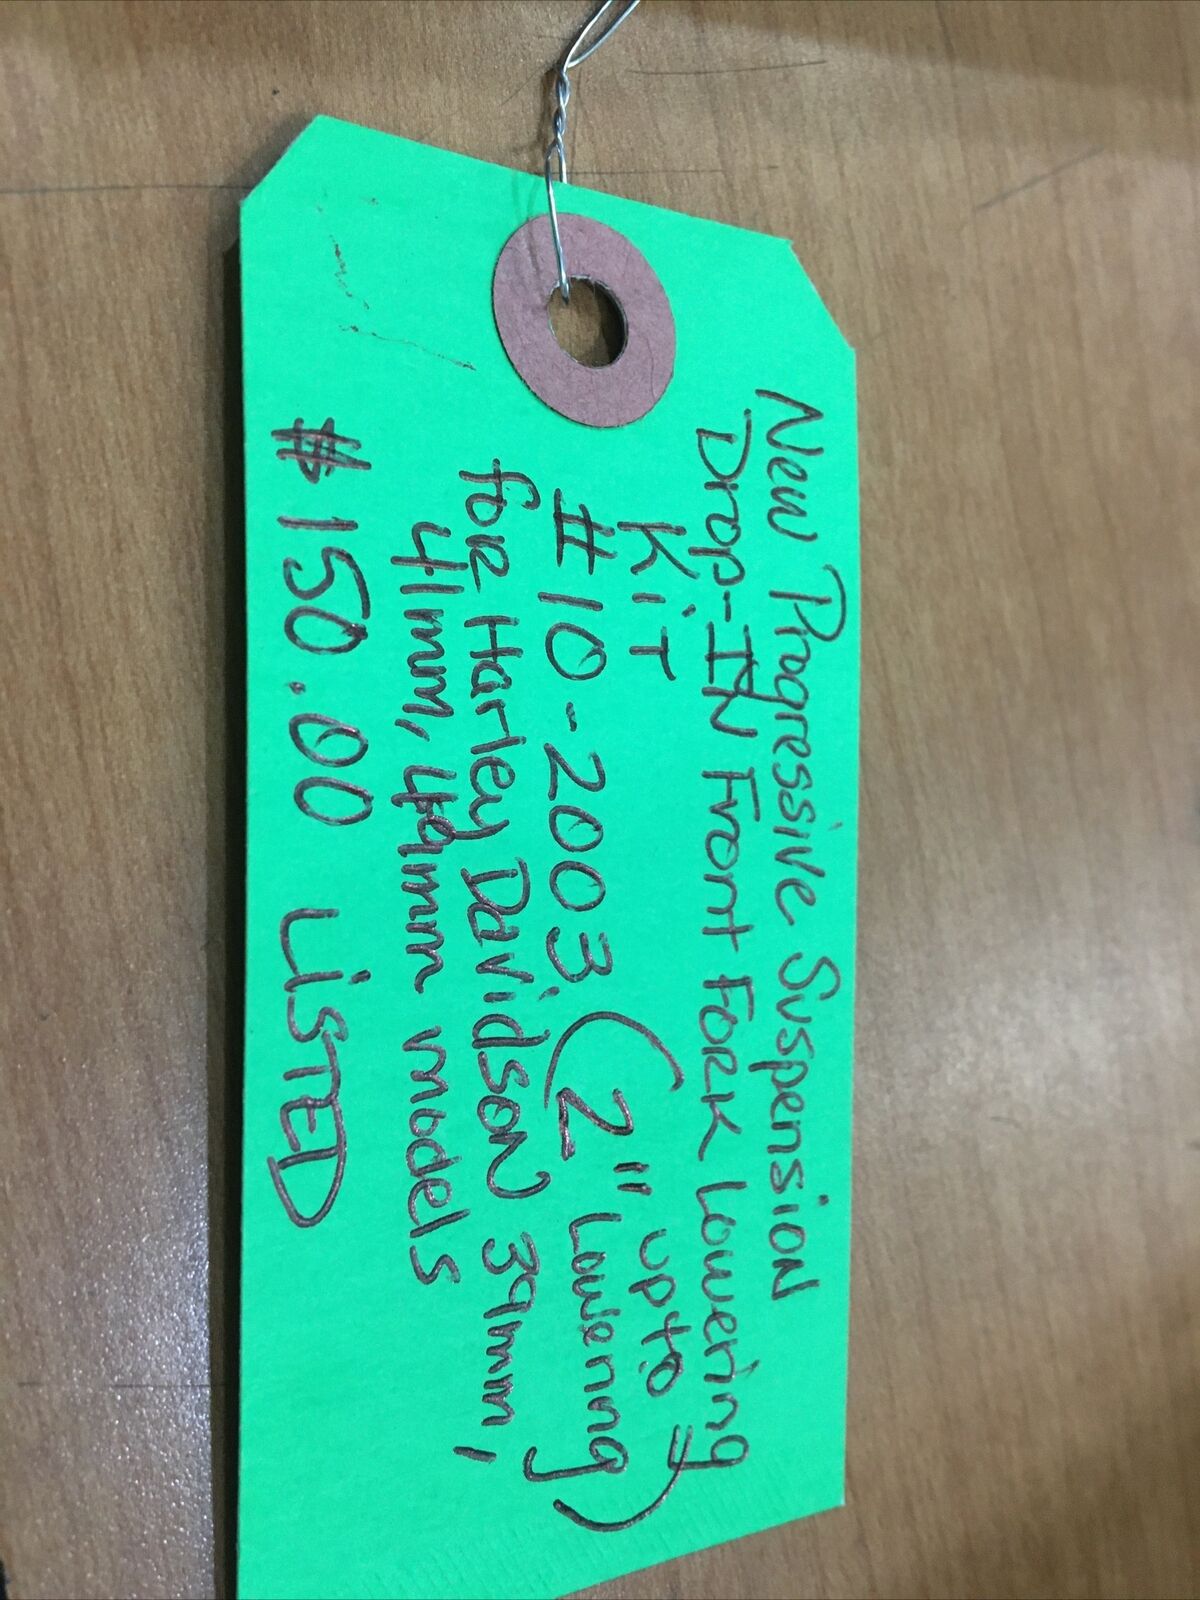 New Progressive Suspension
Drop-IN Front Fork Lowering
KiT
#10-2003 (2" up to Lowering)
for Harley Davidson 39mm,
41mm, 49mm models
$150.00 LiSTED